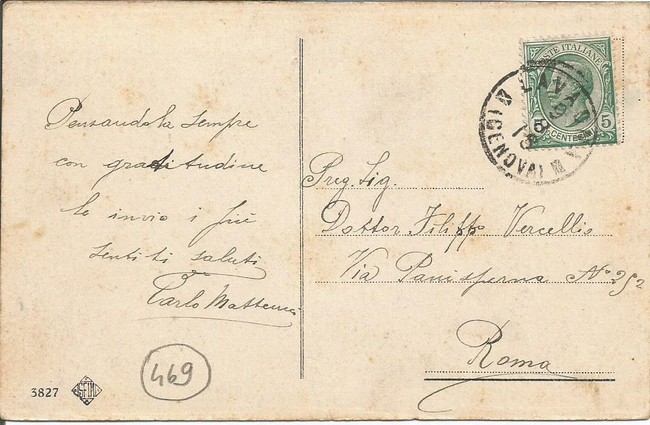 Pensandola sempre
con gratitudine
le invio i più
sentiti saluti
Carlo
469
3827
POSTE ITALIANE
5 5
CENTESIMI
LAVAGNA
(GENOVA)
Preg. Sig.
Dottor Filippo Vercellio
Via Panisperna No 252
Roma